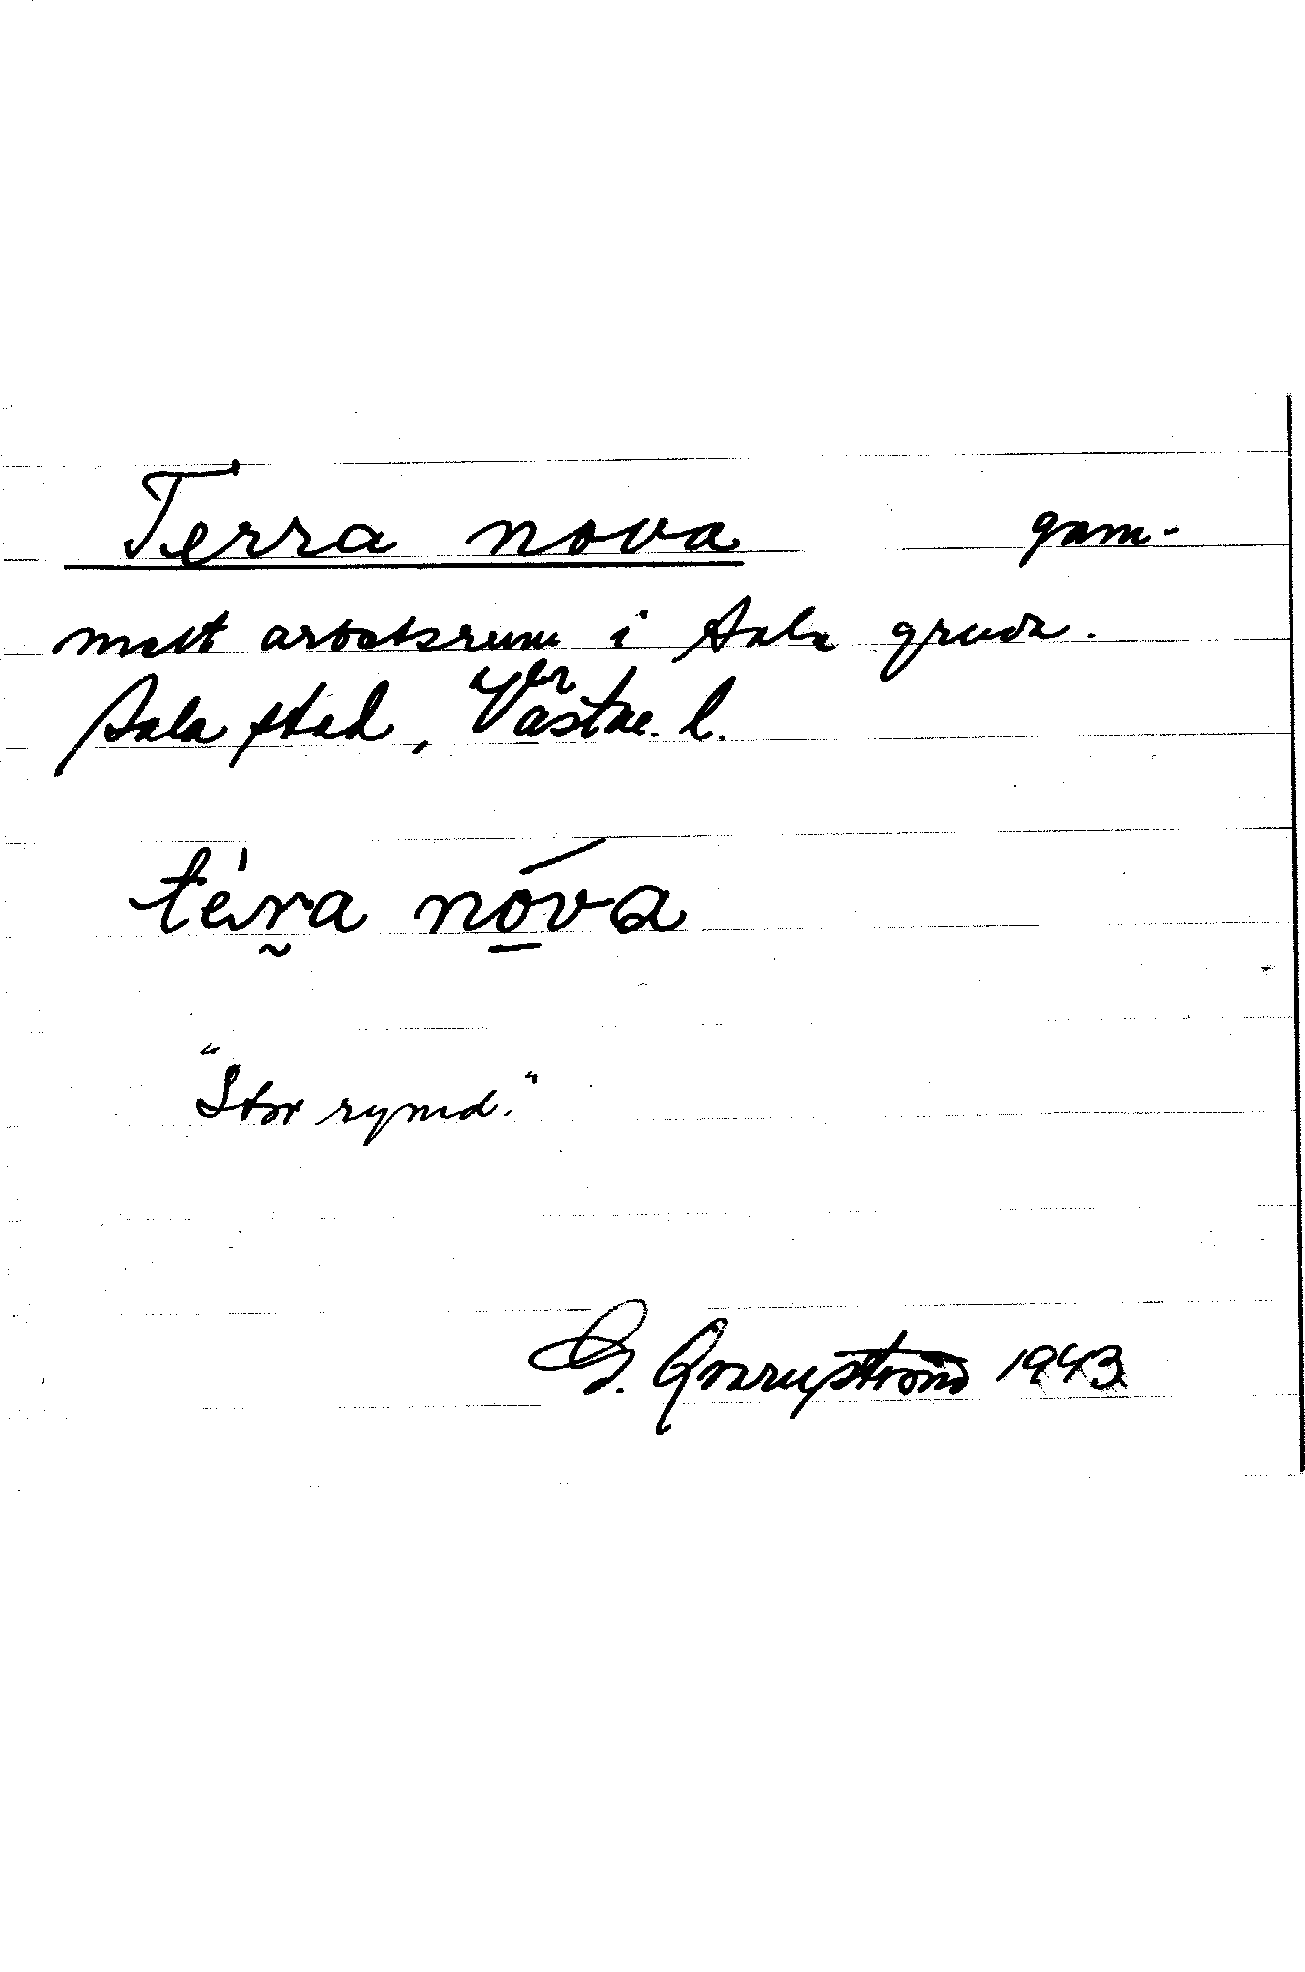 Terra nova gam-
malt arbetsrum i Sala gruva.
Sala stad, Västm. l.
téra nóva
"Stor rymd."
G. 1943